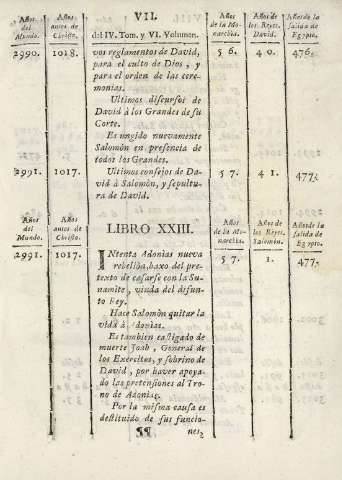 VII.
del IV. Tom. y VI. Volumen.
Años del Mundo.
Años antes de Christo.
Años de la Monarchia.
Años de los Reyes. David.
Años de la salida de Egypto.
2990. 1018. vos reglamentos de David, 56. 40. 476.
para el culto de Dios, y
para el orden de las cere-
monias.
Ultimos discursos de
David à los Grandes de su
Corte.
Es ungido nuevamente
Salomòn en presencia de
todos los Grandes.
2991. 1017. Ultimos consejos de Da- 57. 41. 477.
vid à Salomòn, y sepultu-
ra de David.
Años del Mundo.
Años antes de Christo.
LIBRO XXIII.
Años de la Monarchia.
Años de los Reyes. Salomòn.
Años de la salida de Egypto.
2991. 1017. INtenta Adonìas nueva 57. 1. 477.
rebeliòn, baxo del pre-
texto de casarse con la Su-
namite, viuda del difun-
to Rey.
Hace Salomòn quitar la
vida à Adonìas.
Es tambien castigado de
muerte Joab, General de
los Exercitos, y sobrino de
David, por haver apoya-
do las pretensiones al Tro-
no de Adonìas.
Por la misma causa es
destituìdo de sus funcio-
¶¶ nes,